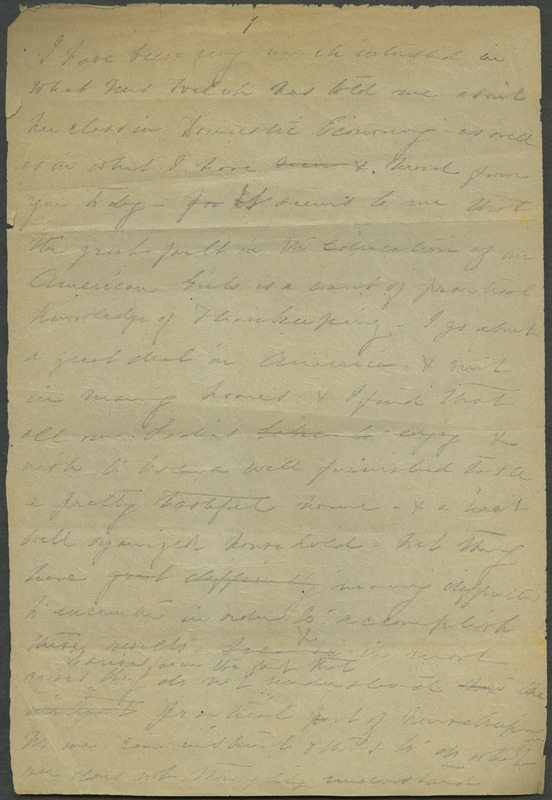 1
I have been very much interested in
what Miss has told me about
her class in Domestic Economy - as well
as in what I have seen & heard from
you to day - for It seems to me that
the great fault in the education of our
American Girls is a want of practical
knowledge of Housekeeping. I go about
a great deal in America. & visit
in many homes & I find that
all our Ladies to enjoy &
wish to have a well furnished table
a pretty tasteful home - & a neat
well organized household - but they
have great difficulty many difficulties
to encounter in order to accomplish
these results & in most
it arises from the fact that
cases they do not understand the
practical part of housekeeping
No one can instruct others to do what
one does not thoroughly understand